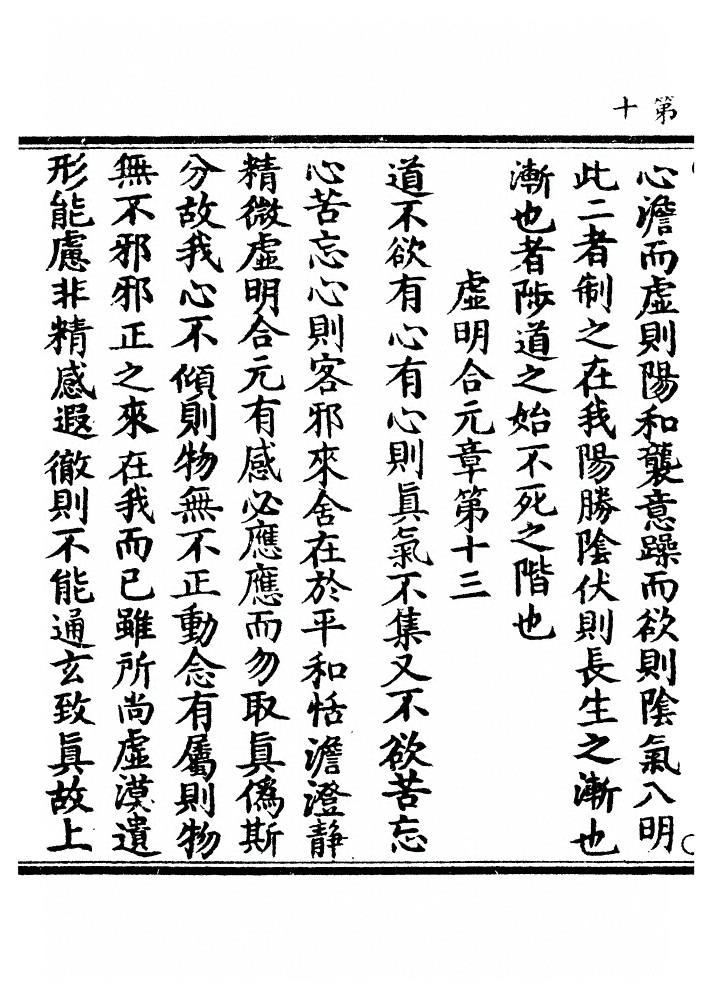 第十
心澹而虛則陽和襲意躁而欲則陰氣入明
此二者制之在我陽勝陰伏則長生之漸也
漸也者陟道之始不死之階也
虛明合元章第十三
道不欲有心有心則眞氣不集又不欲苦忘
心苦忘心則客邪來舍在於平和恬澹澄靜
精微虛明合元有感必應應而勿取眞僞斯
分故我心不傾則物無不正動念有屬則物
無不邪邪正之來在我而已雖所尚虛漠遺
形能慮非精感遐徹則不能通玄致眞故上